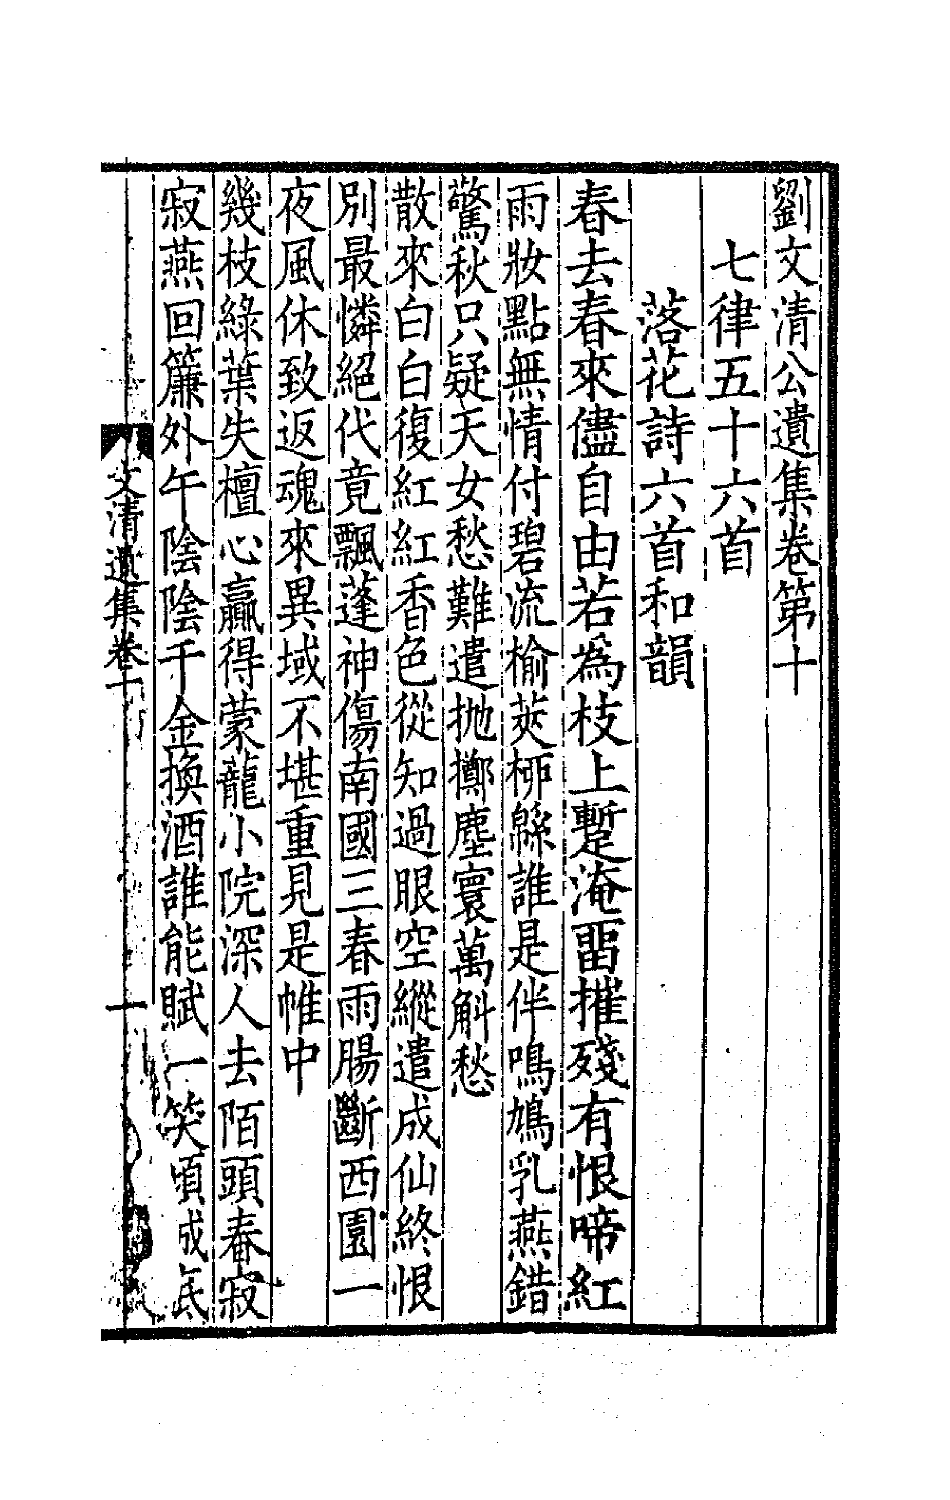 劉文清公遺集卷第十
七律五十六首
落花詩六首和韻
春去春來儘自由若為枝上蹔淹畱摧殘有恨啼紅
雨妝點無情付碧流榆莢桺緜誰是伴鳴鳩乳燕錯
驚秋只疑天女愁難遣抛擲塵寰萬斛愁
散來白白復紅紅香色從知過眼空縱遣成仙終恨
別最憐絕代竟飄蓬神傷南國三春雨腸斷西園一
夜風休致返魂來異域不堪重見是帷中
幾枝綠葉失檀心贏得蒙蘢小院深人去陌頭春寂
寂燕回簾外午陰陰千金換酒誰能賦一笑頃成底
文清遺集卷十
一